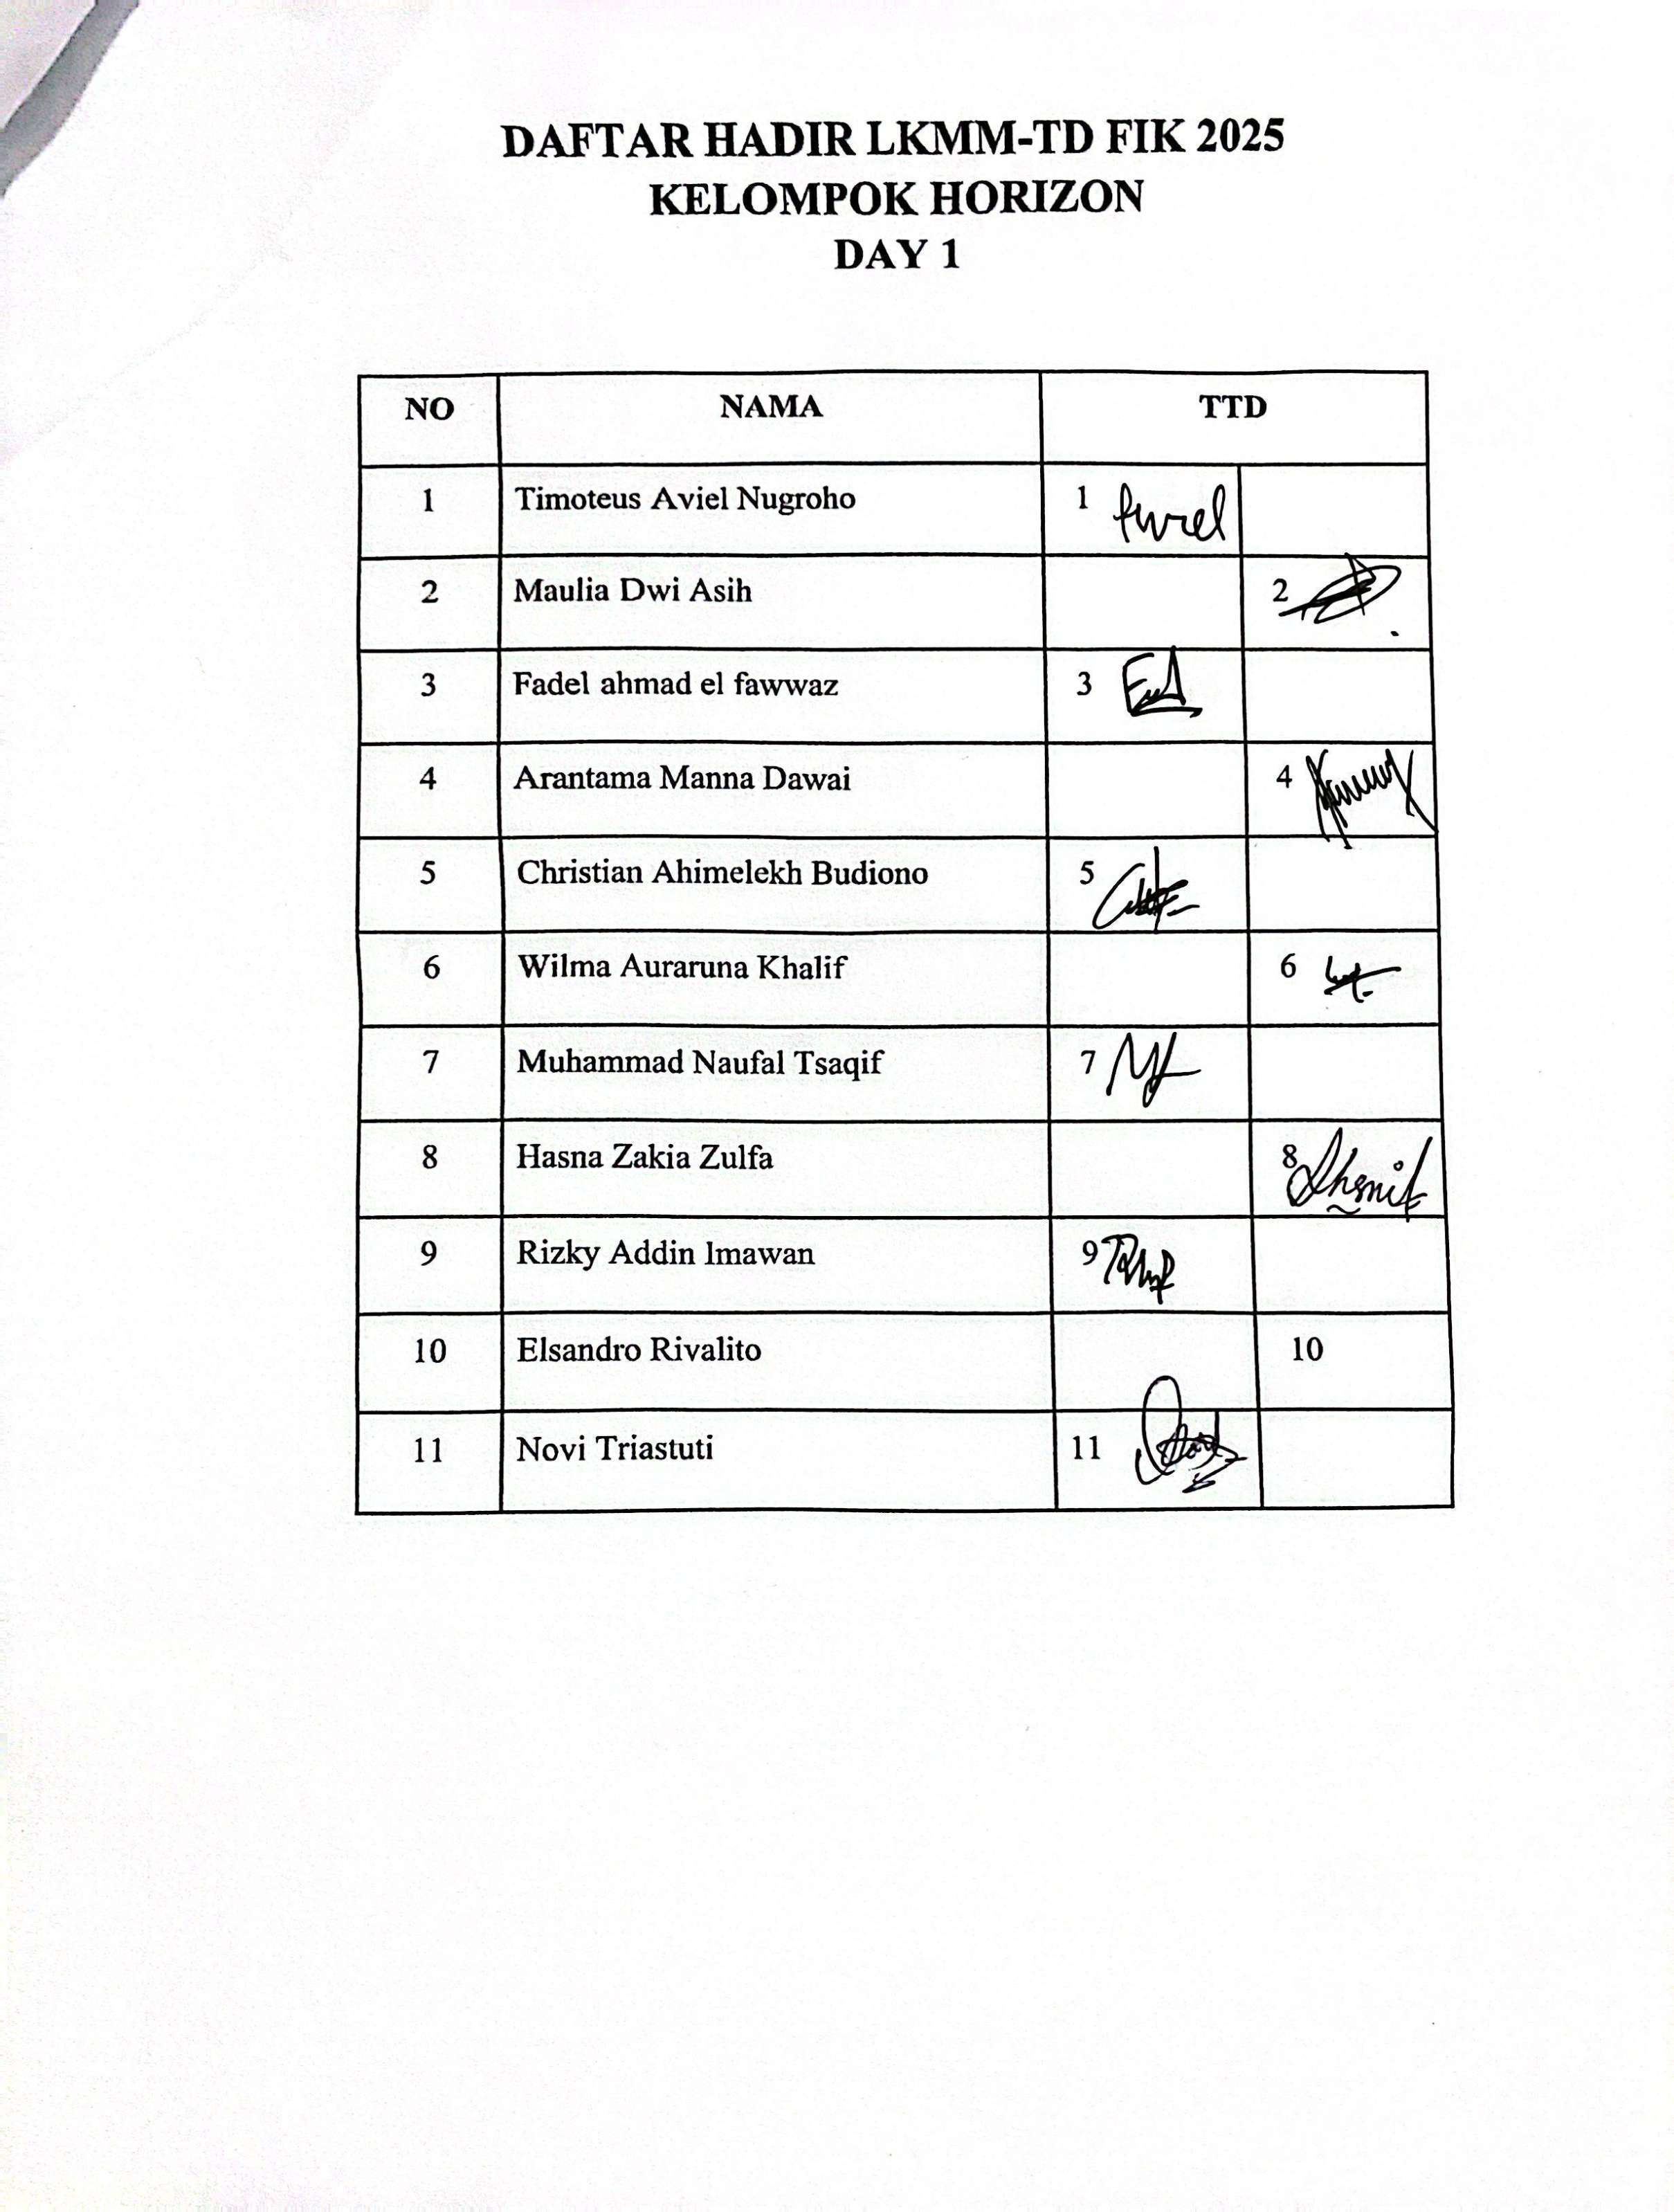 DAFTAR HADIR LKMM-TD FIK 2025
KELOMPOK HORIZON
DAY 1
NO NAMA TTD
1 Timoteus Aviel Nugroho 1
2 Maulia Dwi Asih 2
3 Fadel ahmad el fawwaz 3
4 Arantama Manna Dawai 4
5 Christian Ahimelekh Budiono 5
6 Wilma Auraruna Khalif 6
7 Muhammad Naufal Tsaqif 7
8 Hasna Zakia Zulfa 8
9 Rizky Addin Imawan 9
10 Elsandro Rivalito 10
11 Novi Triastuti 11